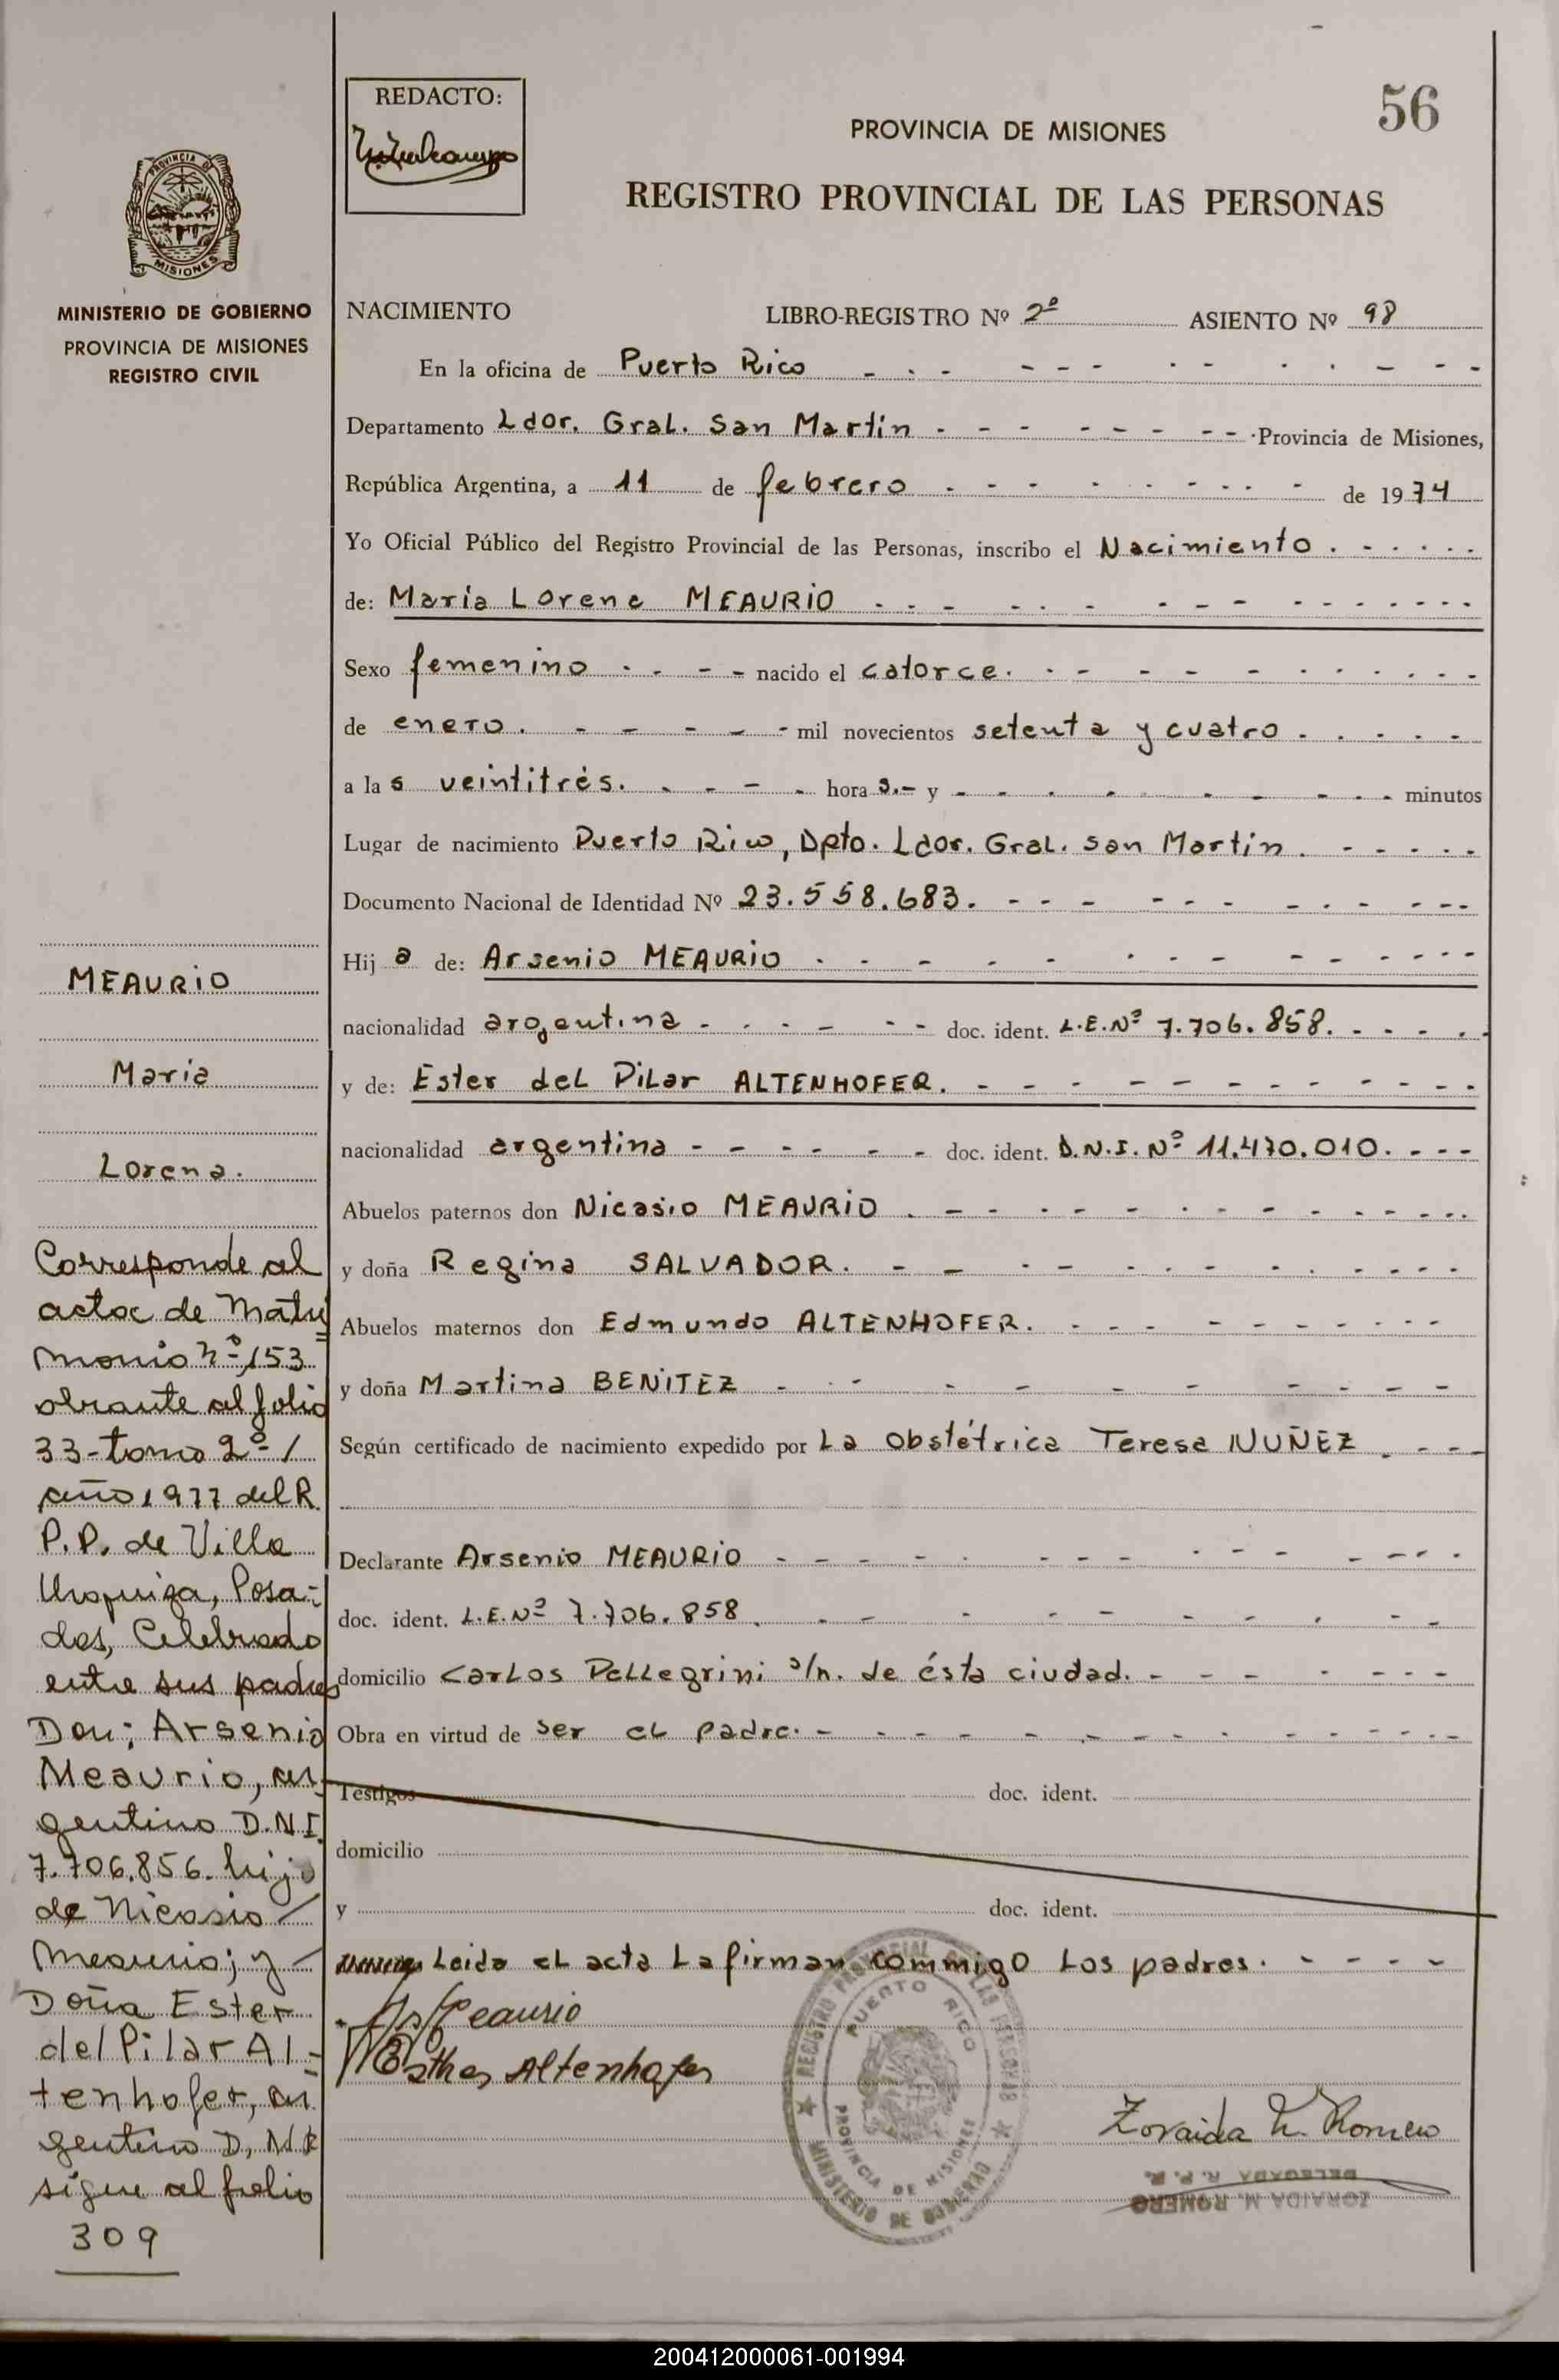 56
REDACTO:
PROVINCIA DE MISIONES
REGISTRO PROVINCIAL DE LAS PERSONAS
PROVINCIA DE
MISIONES
MINISTERIO DE GOBIERNO
PROVINCIA DE MISIONES
REGISTRO CIVIL
NACIMIENTO LIBRO-REGISTRO Nº 2º ASIENTO Nº 98
En la oficina de Puerto Rico
Departamento Ldor. Gral. San Martín Provincia de Misiones,
República Argentina, a 11 de febrero de 1974
Yo Oficial Público del Registro Provincial de las Personas, inscribo el Nacimiento.
de: María Lorena MEAURIO
Sexo femenino nacido el catorce.
de enero. mil novecientos setenta y cuatro.
a las veintitrés. hora s.- y minutos
Lugar de nacimiento Puerto Rico, Dpto. Ldor. Gral. San Martín.
Documento Nacional de Identidad Nº 23.558.683.
Hij a de: Arsenio MEAURIO
nacionalidad argentina doc. ident. L.E.Nº 7.706.858.
y de: Ester del Pilar ALTENHOFER.
nacionalidad argentina doc. ident. D.N.I. Nº 11.470.010.
Abuelos paternos don Nicasio MEAURIO
y doña Regina SALVADOR.
Abuelos maternos don Edmundo ALTENHOFER.
y doña Martina BENITEZ
Según certificado de nacimiento expedido por La Obstétrica Teresa NUÑEZ
Declarante Arsenio MEAURIO
doc. ident. L.E.Nº 7.706.858.
domicilio Carlos Pellegrini s/n. de ésta ciudad.
Obra en virtud de ser el padre.
Testigos doc. ident.
domicilio
y doc. ident.
Leida el acta La firman commigo Los padres.
Meaurio
Esther Altenhofer
REGISTRO PROVINCIAL DE LAS PERSONAS
PUERTO RICO
PROVINCIA DE MISIONES
MINISTERIO DE GOBIERNO
Zoraida M. Romero
DELEGADA R. P. P.
ZORAIDA M. ROMERO
MEAURIO
María
Lorena.
Corresponde al
acta de Matri
monio nº 153
obrante al folio
33-tomo 2º/
año 1977 del R.
P.P. de Villa
Urquiza, Posa-
das, Celebrado
entre sus padres
Don: Arsenio
Meaurio, ar-
gentino D.N.I.
7.706.856. hijo
de Nicasio/
Meaurio; y
Doña Ester
del Pilar Al-
tenhofer, ar
gentino D,N.I
sigue al folio
309
200412000061-001994